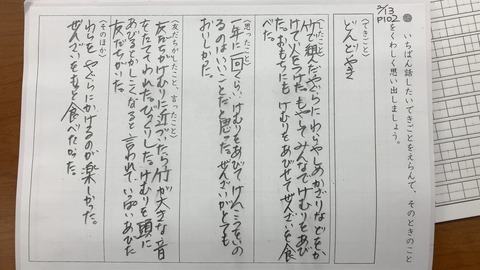 2/13
P102
いちばん話したいできごとをえらんで、そのときのこと
をくわしく思い出しましょう。
(できごと)
どんどやき
(したこと)
竹で組んだやぐらにわらやしめかざりなどをか
けて火をつけた。もやしてみんなでけむりをあび
た。おもちにも けむりをあびせてぜんざいを食
べた。
(思ったこと)
一年に一回ぐらい、けむりをあびて けんこうでい
るのはいいことだと思った。ぜんざいがとても
おいしかった。
(友だちがしたこと、言ったこと)
友だちがけむりに近づいたら竹が大きな音
をたててわれた。びっくりした。けむりを頭に
あびるとかしこくなると 言われて、いっぱいあびた
友だちがいた。
(そのほか)
わらを やぐらにかけるのが楽しかった。
ぜんざいをもっと食べたかった。